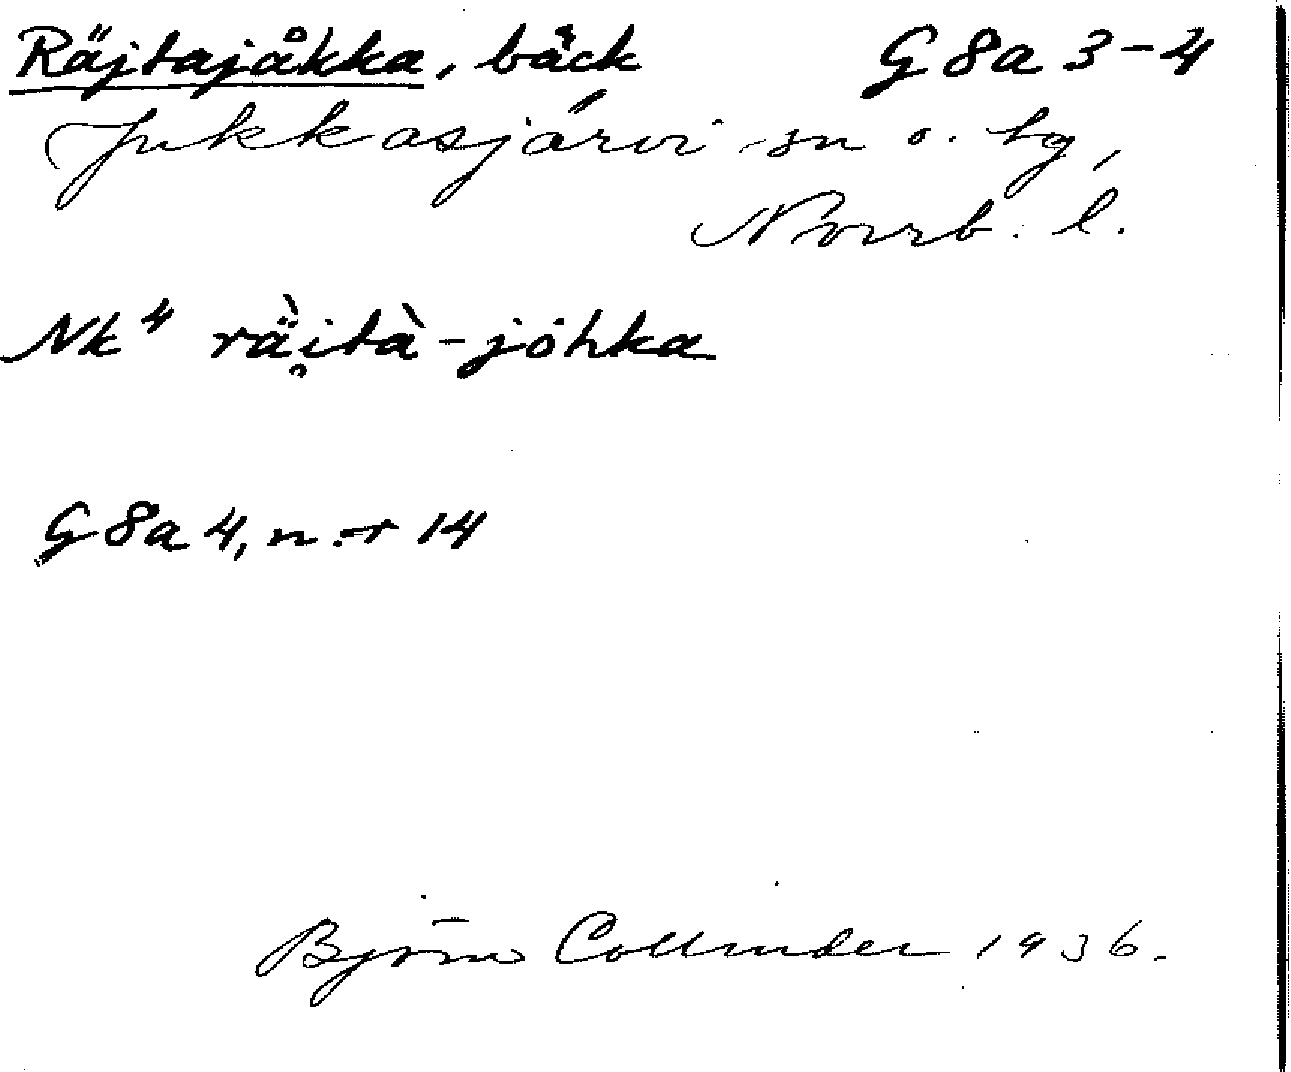 Räjtajåkka, bäck G 8a 3-4
Jukkasjärvi sn o. tg,
Norrb. l.
Nk⁴ rä̀i̥tà-jòhka
G 8a 4, n:r 14
Björn Collinder 1936.